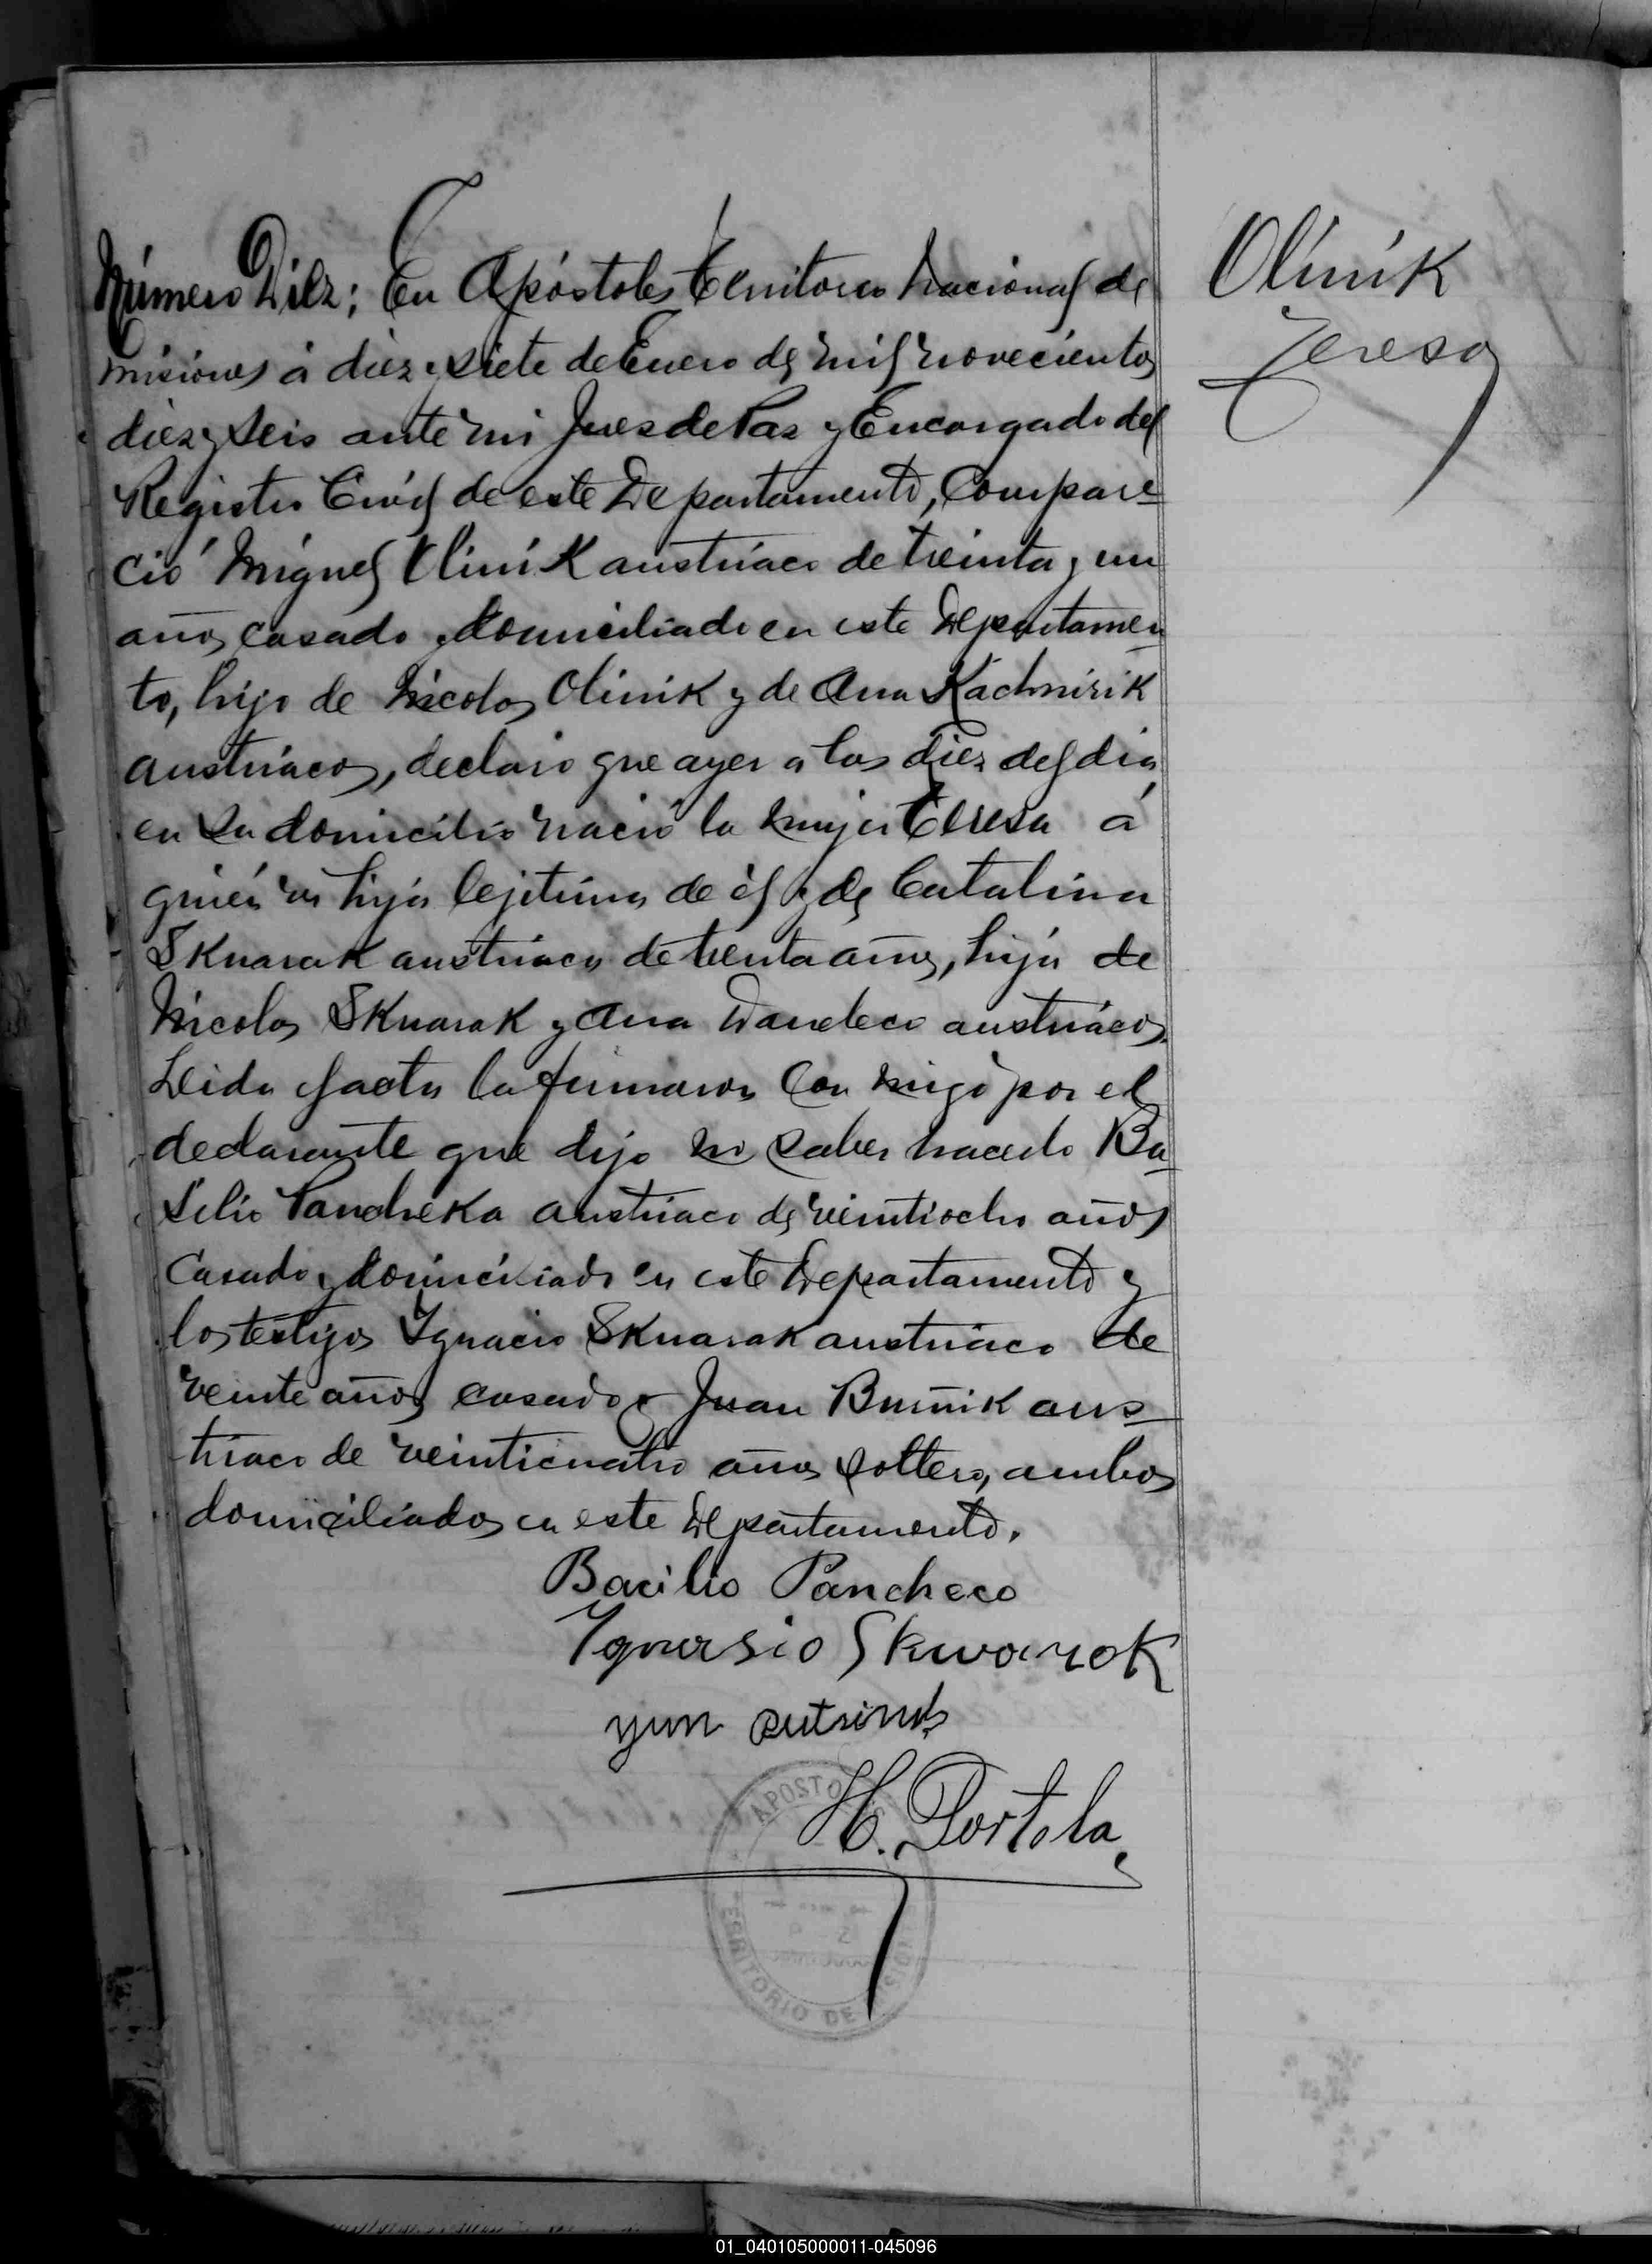 Número Diez; En Apóstoles Territorio Nacional de
Misiones á diez y siete de Enero de mil novecientos
diez y seis ante mi Juez de Paz y Encargado del
Registro Civil de este Departamento, Compare
ció Miguel Olinik austriaco de treinta y un
años casado y domiciliado en este Departamen
to, hijo de Nicolas Olinik y de Ana Kachnirik
austriacos, declaró que ayer a las diez del dia
en su domicilio nació la mujer Teresa á
quién es hija lejitima de él y de Catalina
Sknarak austriaca de trenta años, hija de
Nicolas Sknarak y Ana Dandeco austriácos.
Leida el acta la firmaron con migo por el
declarante que dijo no saber hacerlo Ba
silio Pancheka austriaco de veintiocho años
Casado y domiciliado en este Departamento y
los testigos Ygnacio Sknarak austriaco de
veinte años casado y Juan Buñik aus
triaco de veinticuatro años soltero, ambos
domiciliados en este Departamento.
Bacilio Pancheco
Ygnasio Skwarok
yun
H. Portela
APOSTO
ERRITORIO DE
Olinik
Teresa
01_040105000011-045096